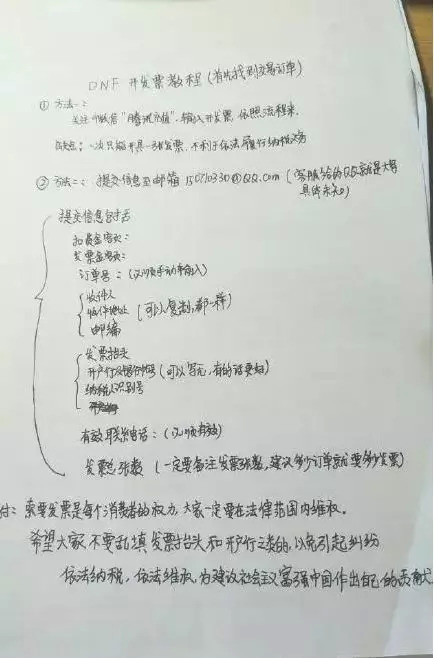 DNF 开发票教程(首先找到交易订单)
① 方法一:
关注小城信"腾讯充值",输入开发票,依照流程来.
缺点:一次只能开具一张发票,不利于依法履行纳税义务
② 方法二:提交信息至邮箱 @QQ.com (客服给的QQ就是大厚
具体未知)
提交信息包括
扣费金额:
发票金额:
订单号:(必须手动单输入)
收件人
收件地址 (可以复制,都一样)
邮编
发票抬头
开户行及银行帐号(可以写无,有的话要如)
纳税人识别号
有效联系电话:(必须有效)
发票总张数 (一定要备注发票张数,建议多少订单就要多少发票)
付:索要发票是每个消费者的权力,大家一定要在法律范围内维权.
希望大家不要乱填发票抬头和开户行之类的,以免引起纠纷
依法纳税,依法维权,为建议社会主义富强中国作出自己的贡献